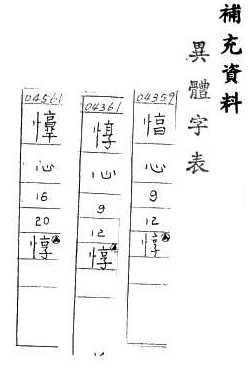 補充資料
異體字表
04359
心
9
12
惇
04361
心
9
12
惇
04561
心
16
20
惇